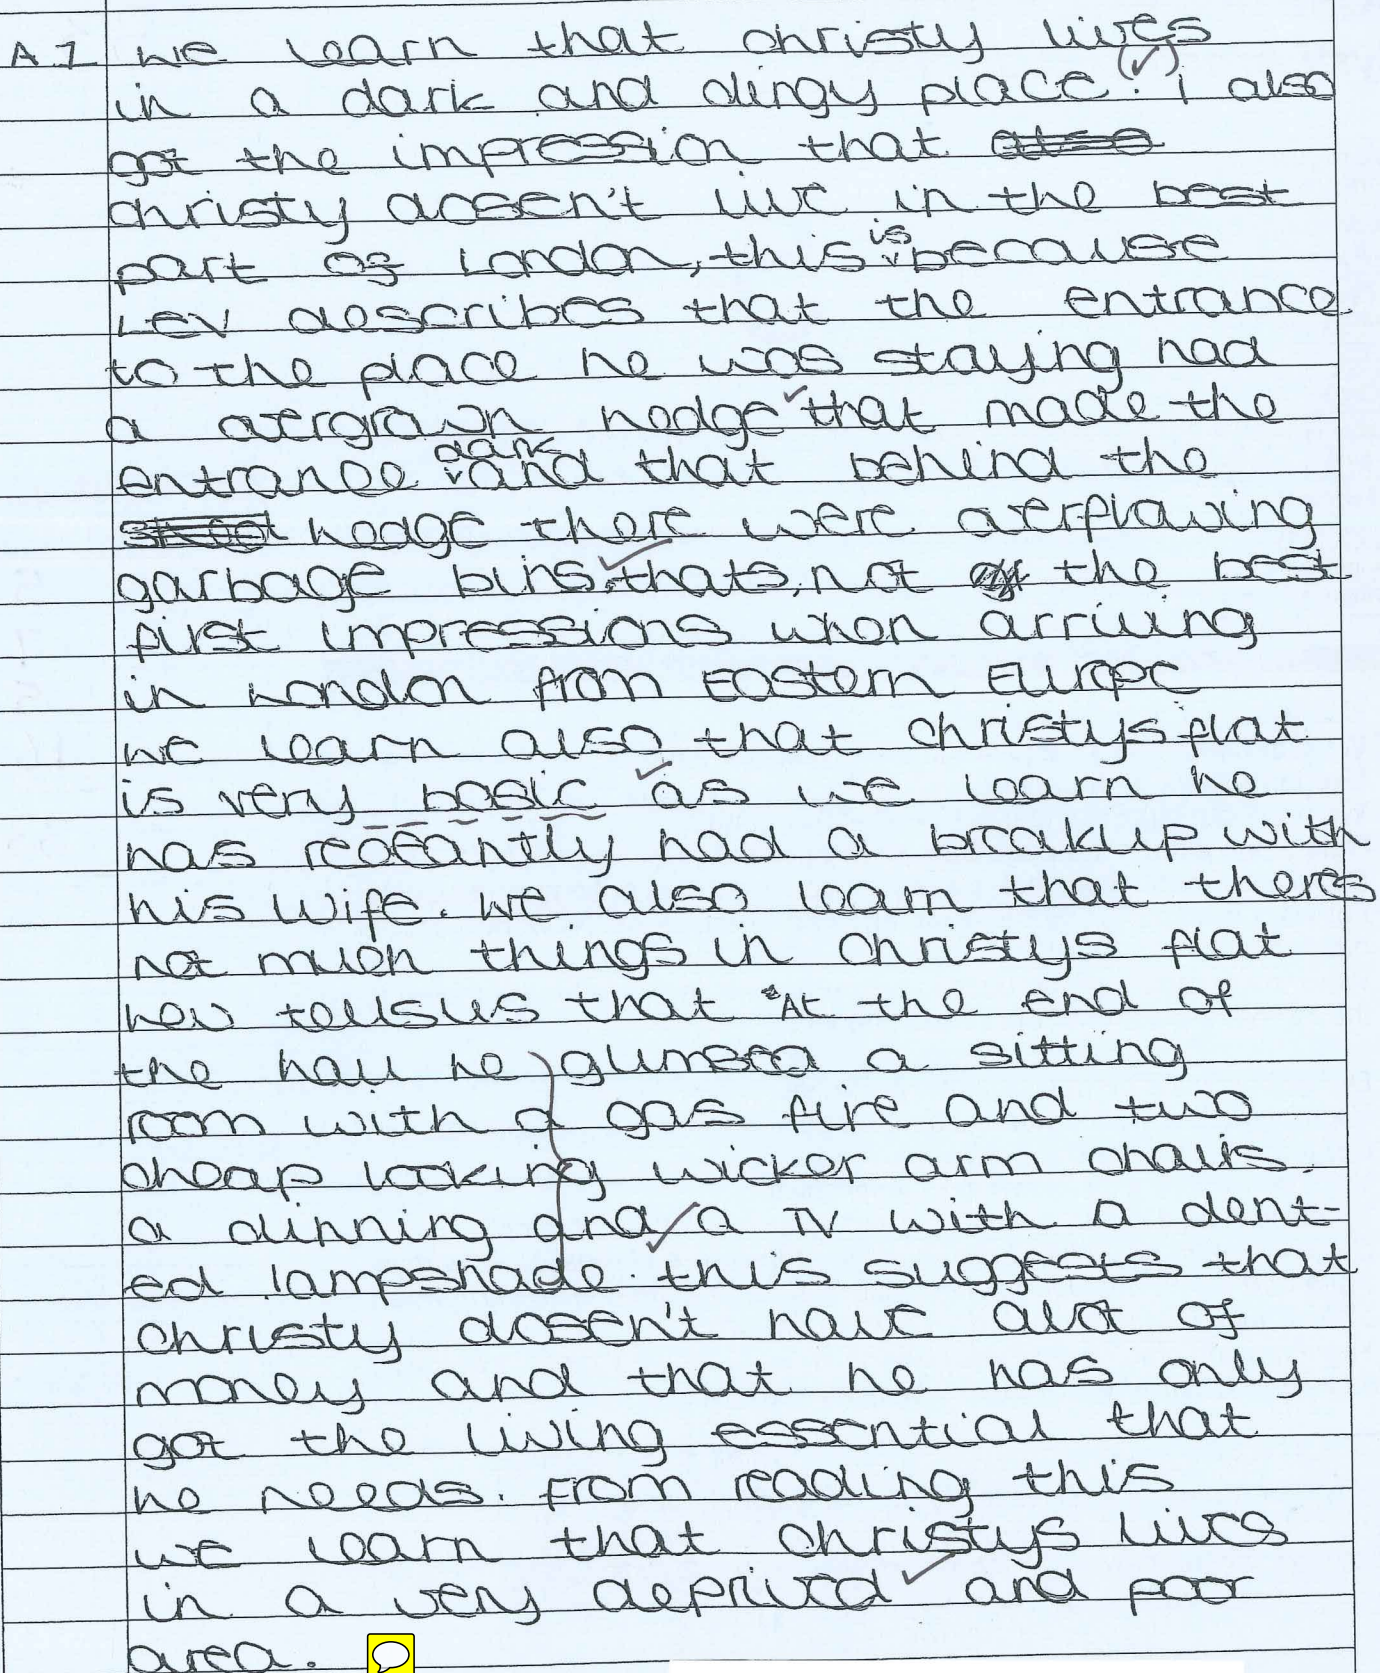 A1 we learn that christy lives
in a dark and dingy place. i also
got the impression that
christy dosen't live in the best
part of London, this is because
Lev describes that the entrance
to the place he was staying had
a overgrown hedge that made the
entrance dark and that behind the
hedge there were overflowing
garbage bins. thats, not the best
first impressions when arriving
in London from Eastern Europe
we learn also, that christys flat
is very basic as we learn he
has receantly had a breakup with
his wife. we also learn that theres
not much things in christys flat
Lev tellsus that "At the end of
the hall he glimsed a sitting
room with a gas fire and two
cheap looking wicker arm chairs.
a dinning and a TV with a dent-
ed lampshade. this suggests that
christy dosen't have alot of
money and that he has only
got the living essential that
he needs. From reading this
we learn that christys lives
in a very deprived and poor
area.